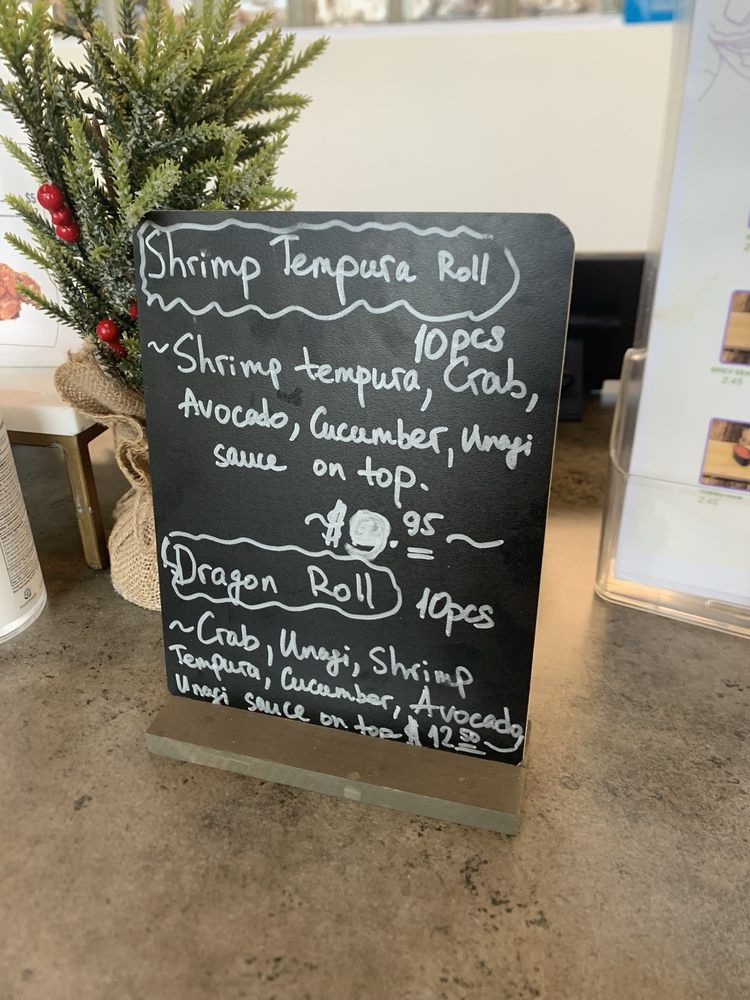 Shrimp Tempura Roll
10pcs
~Shrimp tempura, Crab,
Avocado, Cucumber, Unagi
sauce on top.
~$9.95~
Dragon Roll 10pcs
~Crab, Unagi, Shrimp
Tempura, Cucumber, Avocado,
Unagi sauce on top $12.50~
$5
2.45
2.45